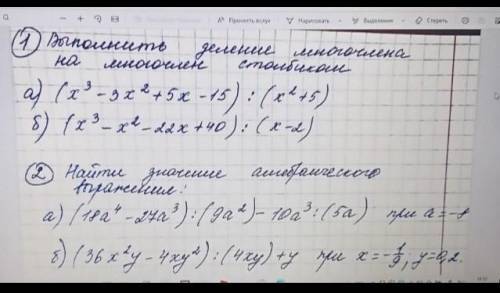 Прочесть вслух Нарисовать Выделение Стереть
① Выполнить деление многочлена
на многочлен столбиком
а) (x³ - 3x² + 5x - 15) : (x² + 5)
б) (x³ - x² - 22x + 40) : (x - 2)
② Найти значение алгебраического
выражения:
а) (18a⁴ - 27a³) : (9a²) - 10a³ : (5a) при a = -8
б) (36x²y - 4xy²) : (4xy) + y при x = -1/9; y = 0,2.